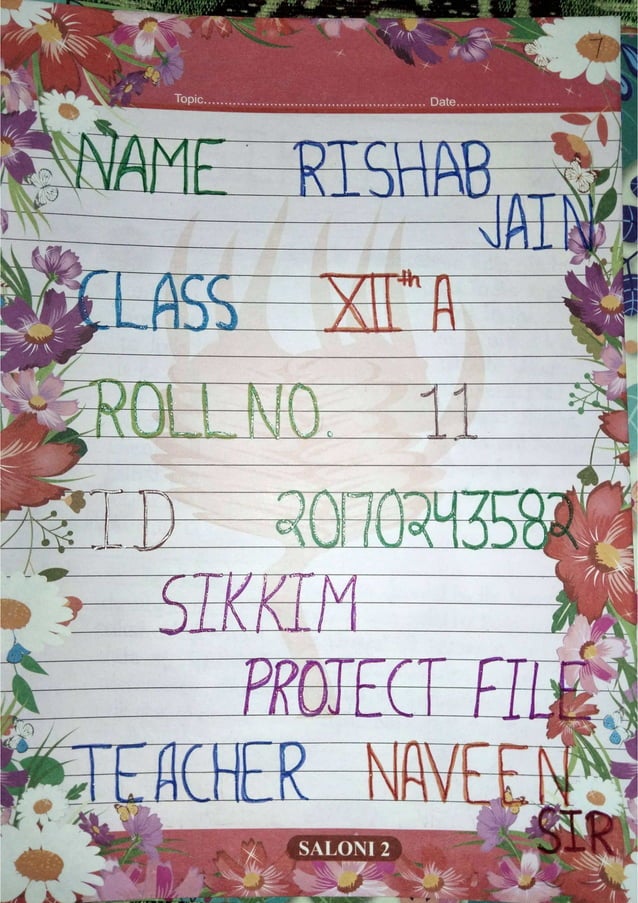 7
Topic........................................................ Date..........................
NAME RISHAB
JAIN
CLASS XIIth A
ROLL NO. 11
ID 20170243582
SIKKIM
PROJECT FILE
TEACHER NAVEEN
SIR
SALONI 2